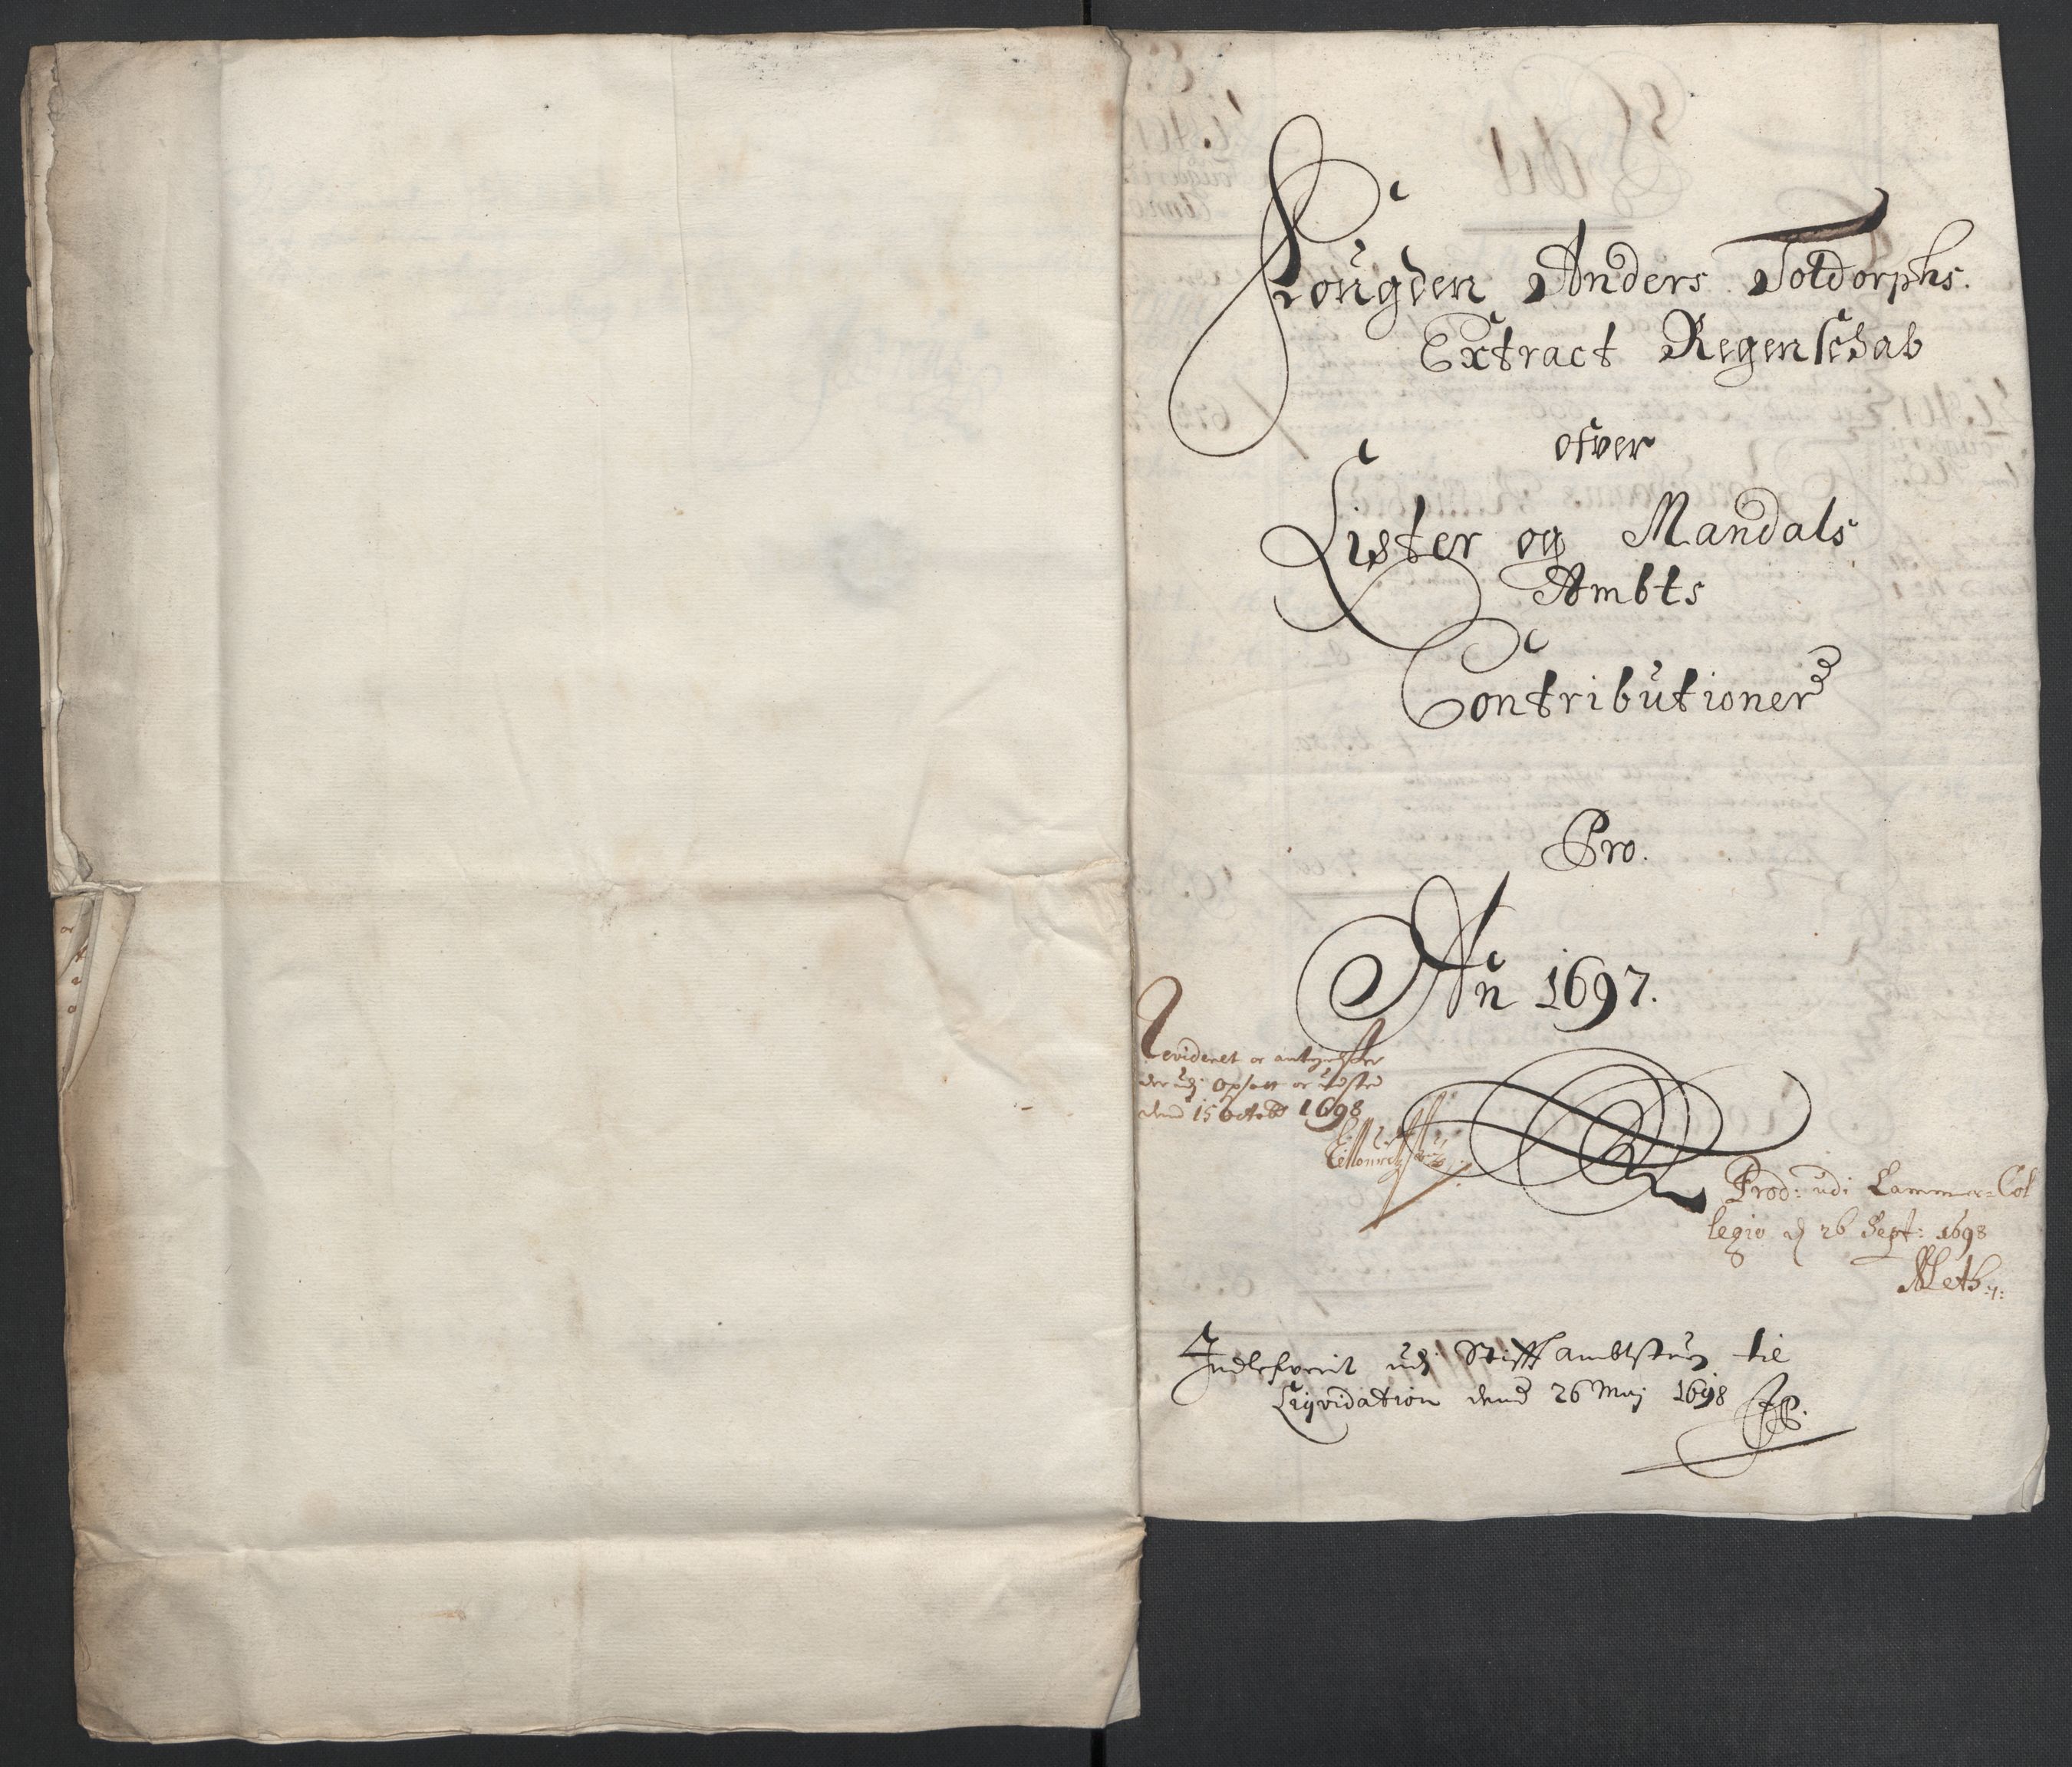 Fougden Anders Toldorphs.
Extract Regenschab
ofver
Lister og Mandals
Ambts
Contributioner
Pro.
An 1697.
Revideret or
der udj Opsatt or
dend 15 Octob 1698
Prod: udi Cammer=Col
legio d 26 Sept: 1698
Meth:
Indlefverit udj Stifftambtstuen til
Liqvidation dend 26 Maj 1698